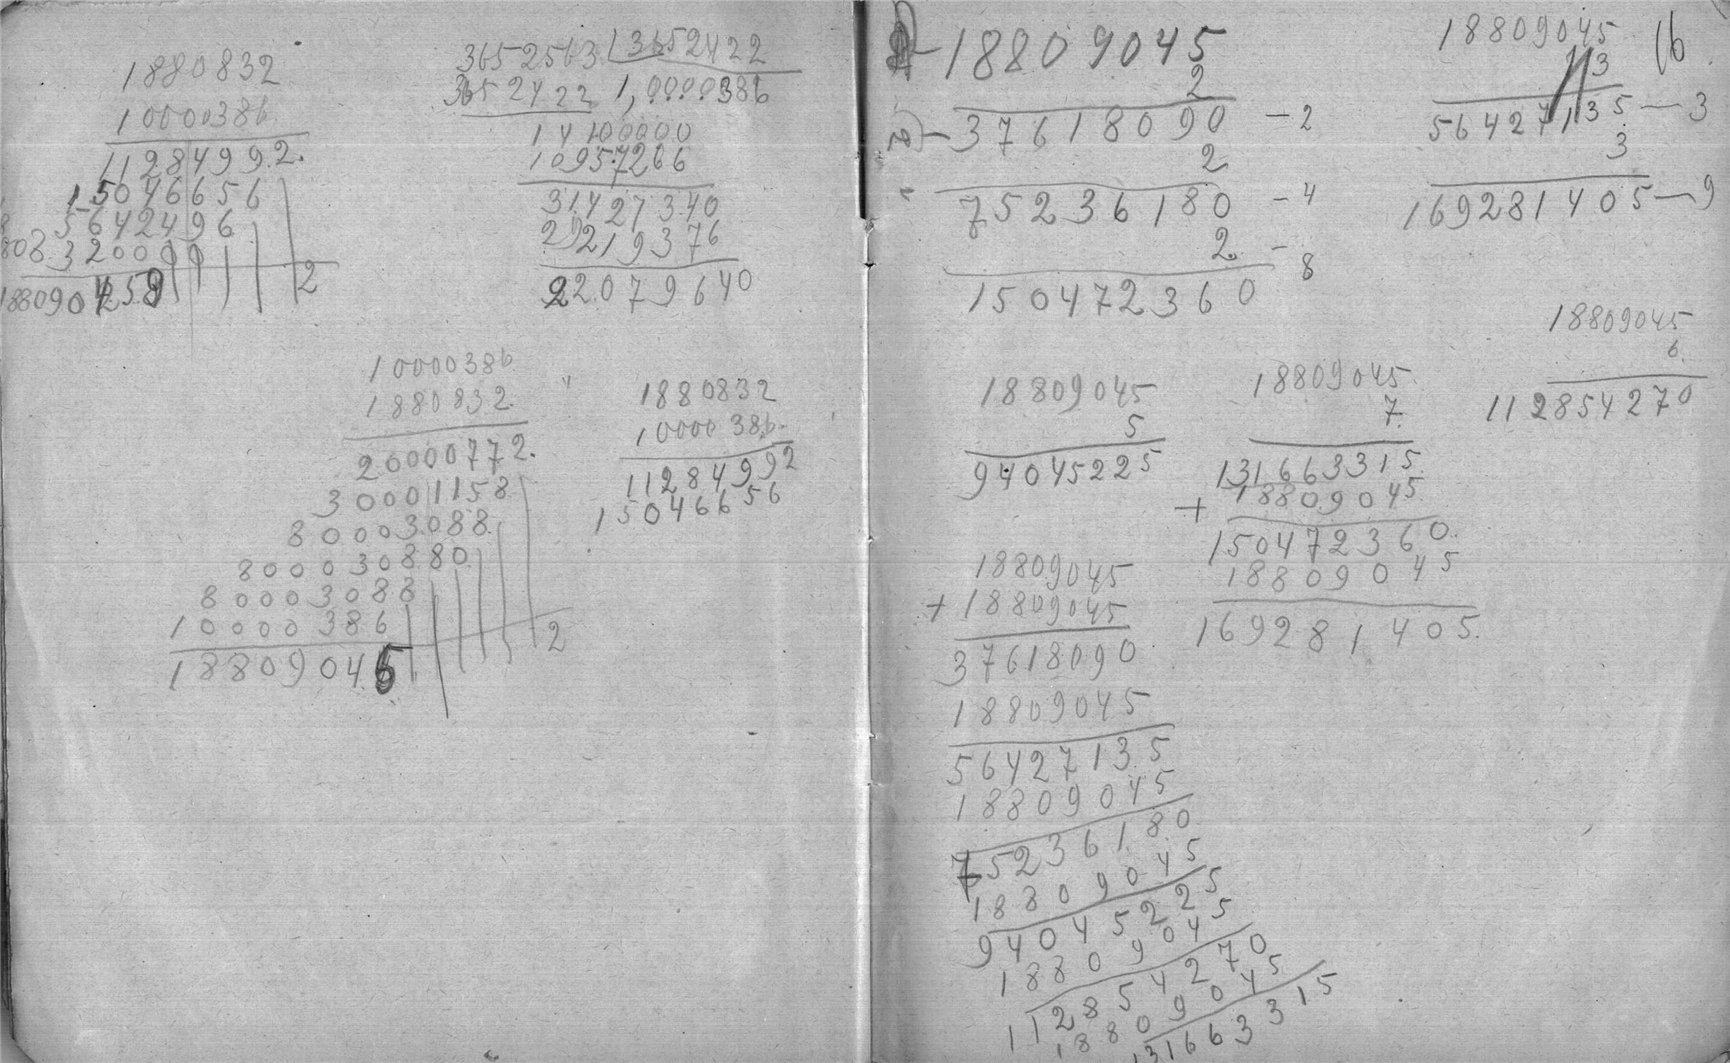 1880832
10000386
11284992.
15046656
5642496
808320000
18809045.9
2
3652563 | 3652422
3652422 1,0000386
14100000
10957266
31427340
29219376
22079640
10000386
1880832.
20000772.
30001158
80003088
800030880.
80003088
10000386
18809045
2
1880832
10000386.
11284992
15046656
18809045
2
37618090 — 2
2
75236180 — 4
2 — 8
150472360
18809045
3
56427135 — 3
3
169281405 — 9
16
18809045
5
94045225
18809045
7.
131663315.
+ 18809045
150472360.
18809045
169281405.
18809045
6.
112854270
18809045
+ 18809045
37618090
18809045
56427135
18809045
75236180
18809045
94045225
18809045
112854270
18809045
131663315